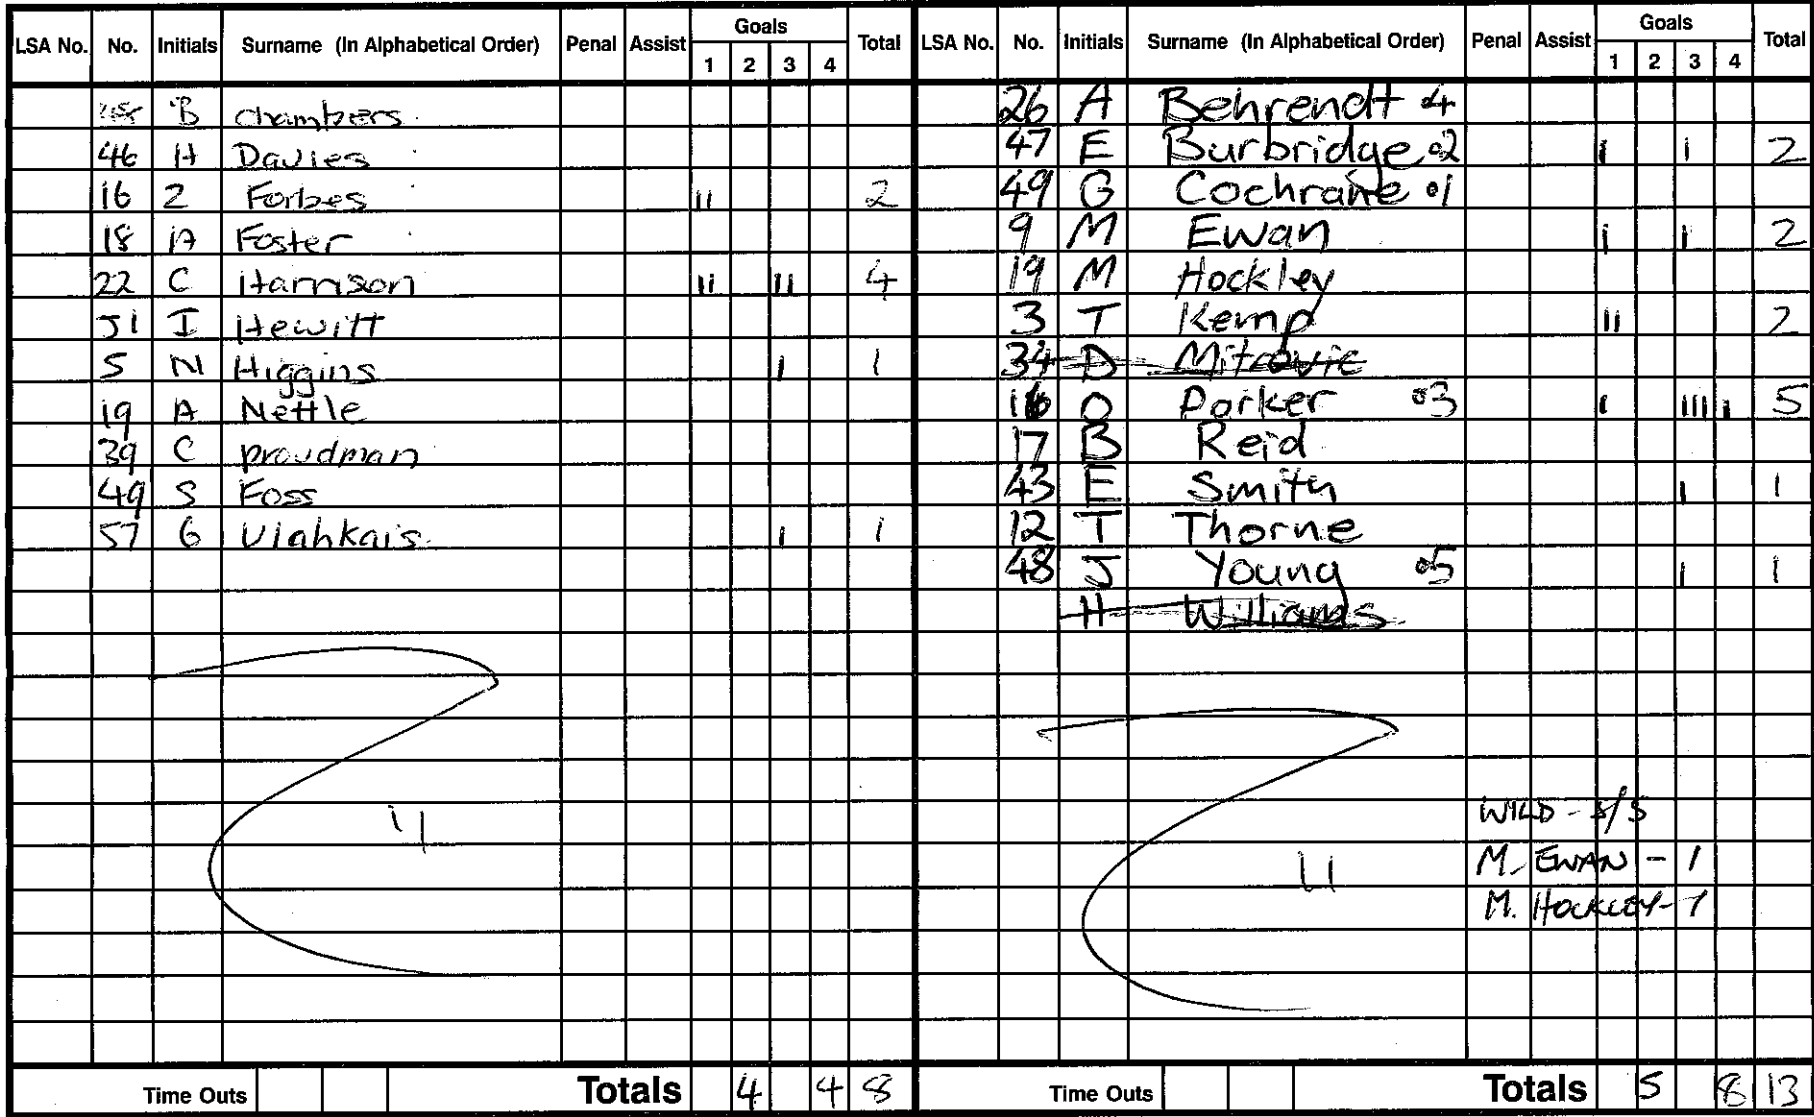 LSA No. No. Initials Surname (In Alphabetical Order) Penal Assist Goals 1 2 3 4 Total
B Chambers
46 H Davies
16 Z Forbes ıı 2
18 A Foster
22 C Harrison ıı ıı 4
51 I Hewitt
5 N Higgins ı 1
19 A Nettle
39 C Proudman
49 S Foss
57 G Vlahkais ı 1
11
Time Outs Totals 4 4 8
LSA No. No. Initials Surname (In Alphabetical Order) Penal Assist Goals 1 2 3 4 Total
26 A Behrendt 4
47 E Burbridge 2 ı ı 2
49 G Cochrane 1
9 M Ewan ı ı 2
19 M Hockley
3 T Kemp ıı 2
34 D Mitrovic
16 O Parker 3 ı ııı ı 5
17 B Reid
43 E Smith ı 1
12 T Thorne
48 J Young 5 ı 1
H Williams
WILD - 5/3
11
M. EWAN - 1
M. HOCKLEY - 1
Time Outs Totals 5 8 13